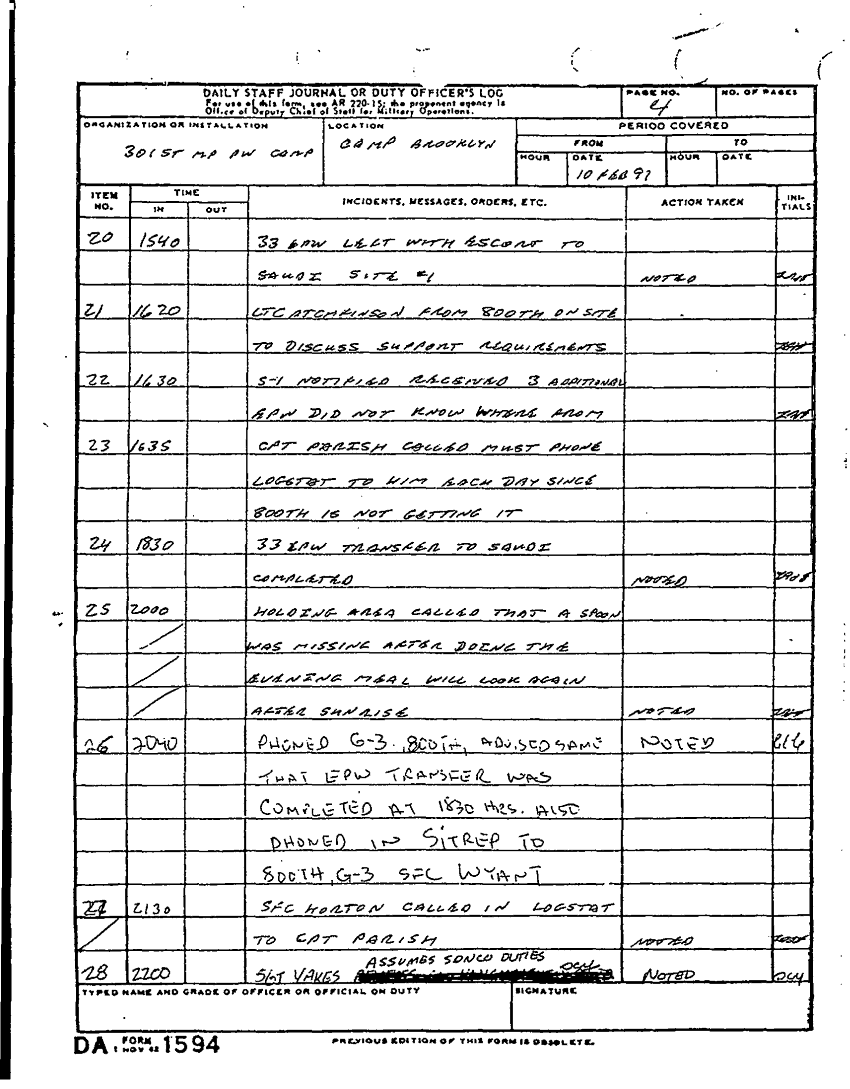 DAILY STAFF JOURNAL OR DUTY OFFICER'S LOG
For use of this form, see AR 220-15; the proponent agency is
Office of Deputy Chief of Staff for Military Operations.
PAGE NO.
4
NO. OF PAGES
ORGANIZATION OR INSTALLATION
301ST MP PW CAMP
LOCATION
CAMP BROOKLYN
PERIOD COVERED
FROM
TO
HOUR
DATE
10 FEB 91
HOUR
DATE
ITEM NO.
TIME
IN
OUT
INCIDENTS, MESSAGES, ORDERS, ETC.
ACTION TAKEN
INI-TIALS
20 1540 33 EPW LEFT WITH ESCORT TO
SAUDI SITE #1 NOTED
21 1620 LTC ATCHKINSON FROM 800TH ON SITE
TO DISCUSS SUPPORT REQUIREMENTS
22 1630 S-1 NOTIFIED RECEIVED 3 ADDITIONAL
EPW DID NOT KNOW WHERE FROM
23 1635 CPT PARISH CALLED MUST PHONE
LOGSTAT TO HIM EACH DAY SINCE
800TH IS NOT GETTING IT
24 1830 33 EPW TRANSFER TO SAUDI
COMPLETED NOTED
25 2000 HOLDING AREA CALLED THAT A SPOON
WAS MISSING AFTER DOING THE
EVENING MEAL WILL LOOK AGAIN
AFTER SUNRISE NOTED
26 2040 PHONED G-3, 800TH, ADVISED SAME NOTED
THAT EPW TRANSFER WAS
COMPLETED AT 1830 HRS. ALSO
PHONED IN SITREP TO
800TH, G-3 SFC WYANT
27 2130 SFC HORTON CALLED IN LOGSTAT
TO CPT PARISH NOTED
ASSUMES SDNCO DUTIES
28 2200 SGT VAKES NOTED
TYPED NAME AND GRADE OF OFFICER OR OFFICIAL ON DUTY
SIGNATURE
DA FORM 1 NOV 62 1594
PREVIOUS EDITION OF THIS FORM IS OBSOLETE.